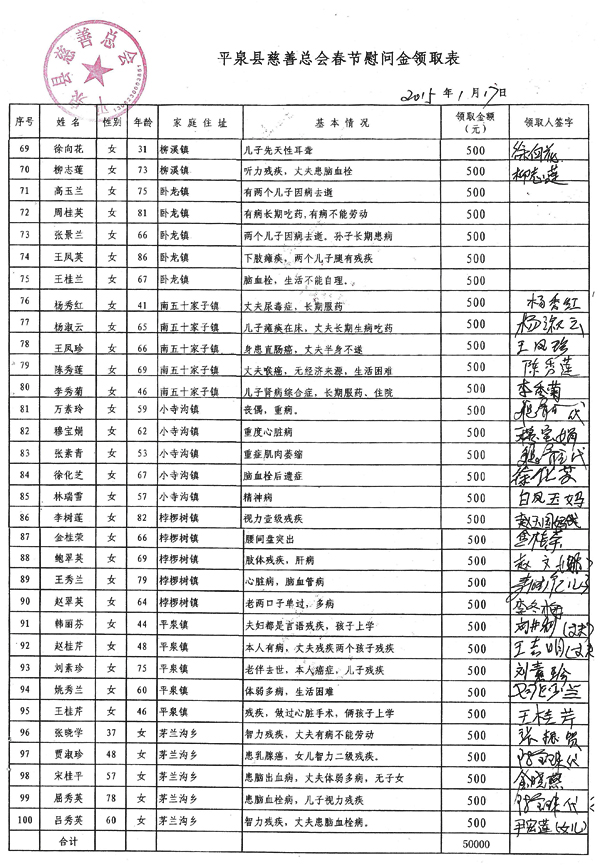 平泉县慈善总会
平泉县慈善总会春节慰问金领取表
2015年1月17日
序号 姓名 性别 年龄 家庭住址 基本情况 领取金额（元） 领取人签字
69 徐向花 女 31 柳溪镇 儿子先天性耳聋 500 徐向花
70 柳志莲 女 73 柳溪镇 听力残疾，丈夫患脑血栓 500 柳志莲
71 高玉兰 女 75 卧龙镇 有两个儿子因病去逝 500
72 周桂英 女 81 卧龙镇 有病长期吃药,有病不能劳动 500
73 张景兰 女 66 卧龙镇 两个儿子因病去逝。孙子长期患病 500
74 王凤英 女 86 卧龙镇 下肢瘫疾，两个儿子腿有残疾 500
75 王桂兰 女 67 卧龙镇 脑血栓，生活不能自理。 500
76 杨秀红 女 41 南五十家子镇 丈夫尿毒症，长期服药 500 杨秀红
77 杨淑云 女 65 南五十家子镇 儿子瘫痪在床，丈夫长期生病吃药 500 杨淑云
78 王凤珍 女 66 南五十家子镇 身患直肠癌，丈夫半身不遂 500 王凤珍
79 陈秀莲 女 69 南五十家子镇 丈夫喉癌，无经济来源，生活困难 500 陈秀莲
80 李秀菊 女 46 南五十家子镇 儿子肾病综合症，长期服药、住院 500 李秀菊
81 万素玲 女 59 小寺沟镇 丧偶，重病。 500
82 穆宝娟 女 62 小寺沟镇 重度心脏病 500 穆宝娟
83 张素青 女 53 小寺沟镇 重症肌肉萎缩 500
84 徐化芝 女 67 小寺沟镇 脑血栓后遗症 500 徐化芝
85 林瑞雪 女 57 小寺沟镇 精神病 500 白凤玉妈
86 李树莲 女 82 桲椤树镇 视力壹级残疾 500
87 金桂荣 女 66 桲椤树镇 腰间盘突出 500 金桂荣
88 鲍翠英 女 69 桲椤树镇 肢体残疾，肝病 500
89 王秀兰 女 79 桲椤树镇 心脏病，脑血管病 500
90 赵翠英 女 64 桲椤树镇 老两口子单过，多病 500 李冬梅
91 韩丽芬 女 44 平泉镇 夫妇都是言语残疾，孩子上学 500
92 赵桂芹 女 48 平泉镇 本人有病，丈夫残疾两个孩子残疾 500
93 刘素珍 女 75 平泉镇 老伴去世，本人癌症，儿子残疾 500 刘素珍
94 姚秀兰 女 60 平泉镇 体弱多病，生活困难 500
95 王桂芹 女 46 平泉镇 残疾，做过心脏手术，俩孩子上学 500 王桂芹
96 张晓学 女 37 茅兰沟乡 智力残疾，丈夫有病不能劳动 500
97 贾淑珍 女 48 茅兰沟乡 患乳腺癌，女儿智力二级残疾。 500
98 宋桂平 女 57 茅兰沟乡 患脑出血病，丈夫体弱多病，无子女 500
99 屈秀英 女 78 茅兰沟乡 患脑血栓病，儿子视力残疾 500
100 吕秀英 女 60 茅兰沟乡 智力残疾，丈夫患脑血栓病。 500 尹宏莲(女儿)
合计 50000